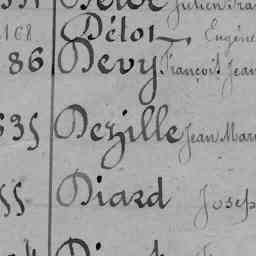 168 Délot Eugène
86 Devy François Jean
535 Dezille Jean Mari
55 Diard Joseph